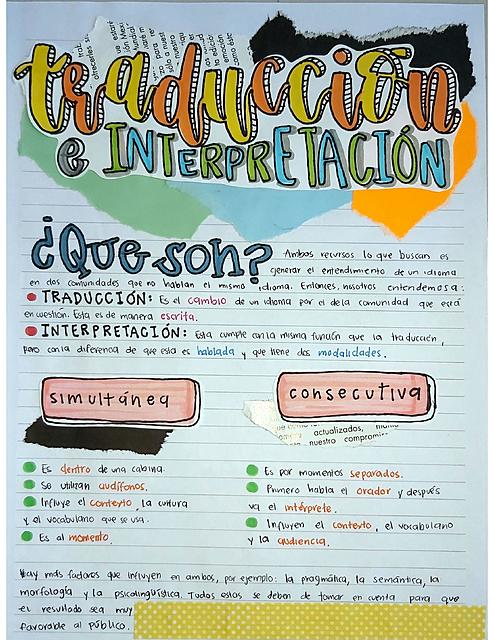 traducción
e INTERPRETACIÓN
¿Que son?
Ambos recursos lo que buscan es
generar el entendimiento de un idioma
en dos comunidades que no hablan el mismo idioma. Entonces, nosotros entendemos a:
TRADUCCIÓN: Es el cambio de un idioma por el de la comunidad que está
en cuestión. Esta es de manera escrita.
INTERPRETACIÓN: Esta cumple con la misma función que la traducción,
pero con la diferencia de que esta es hablada y que tiene dos modalidades.
simultánea
Es dentro de una cabina.
Se utilizan audífonos.
Influye el contexto, la cultura
y el vocabulario que se usa.
Es al momento.
consecutiva
actualizados,
nuestro compromiso
Es por momentos separados.
Primero habla el orador y después
va el intérprete.
Influyen el contexto, el vocabulario
y la audiencia.
Hay más factores que influyen en ambos, por ejemplo: la pragmática, la semántica, la
morfología y la psicolingüística. Todos estos se deben de tomar en cuenta para que
el resultado sea muy
favorable al público.